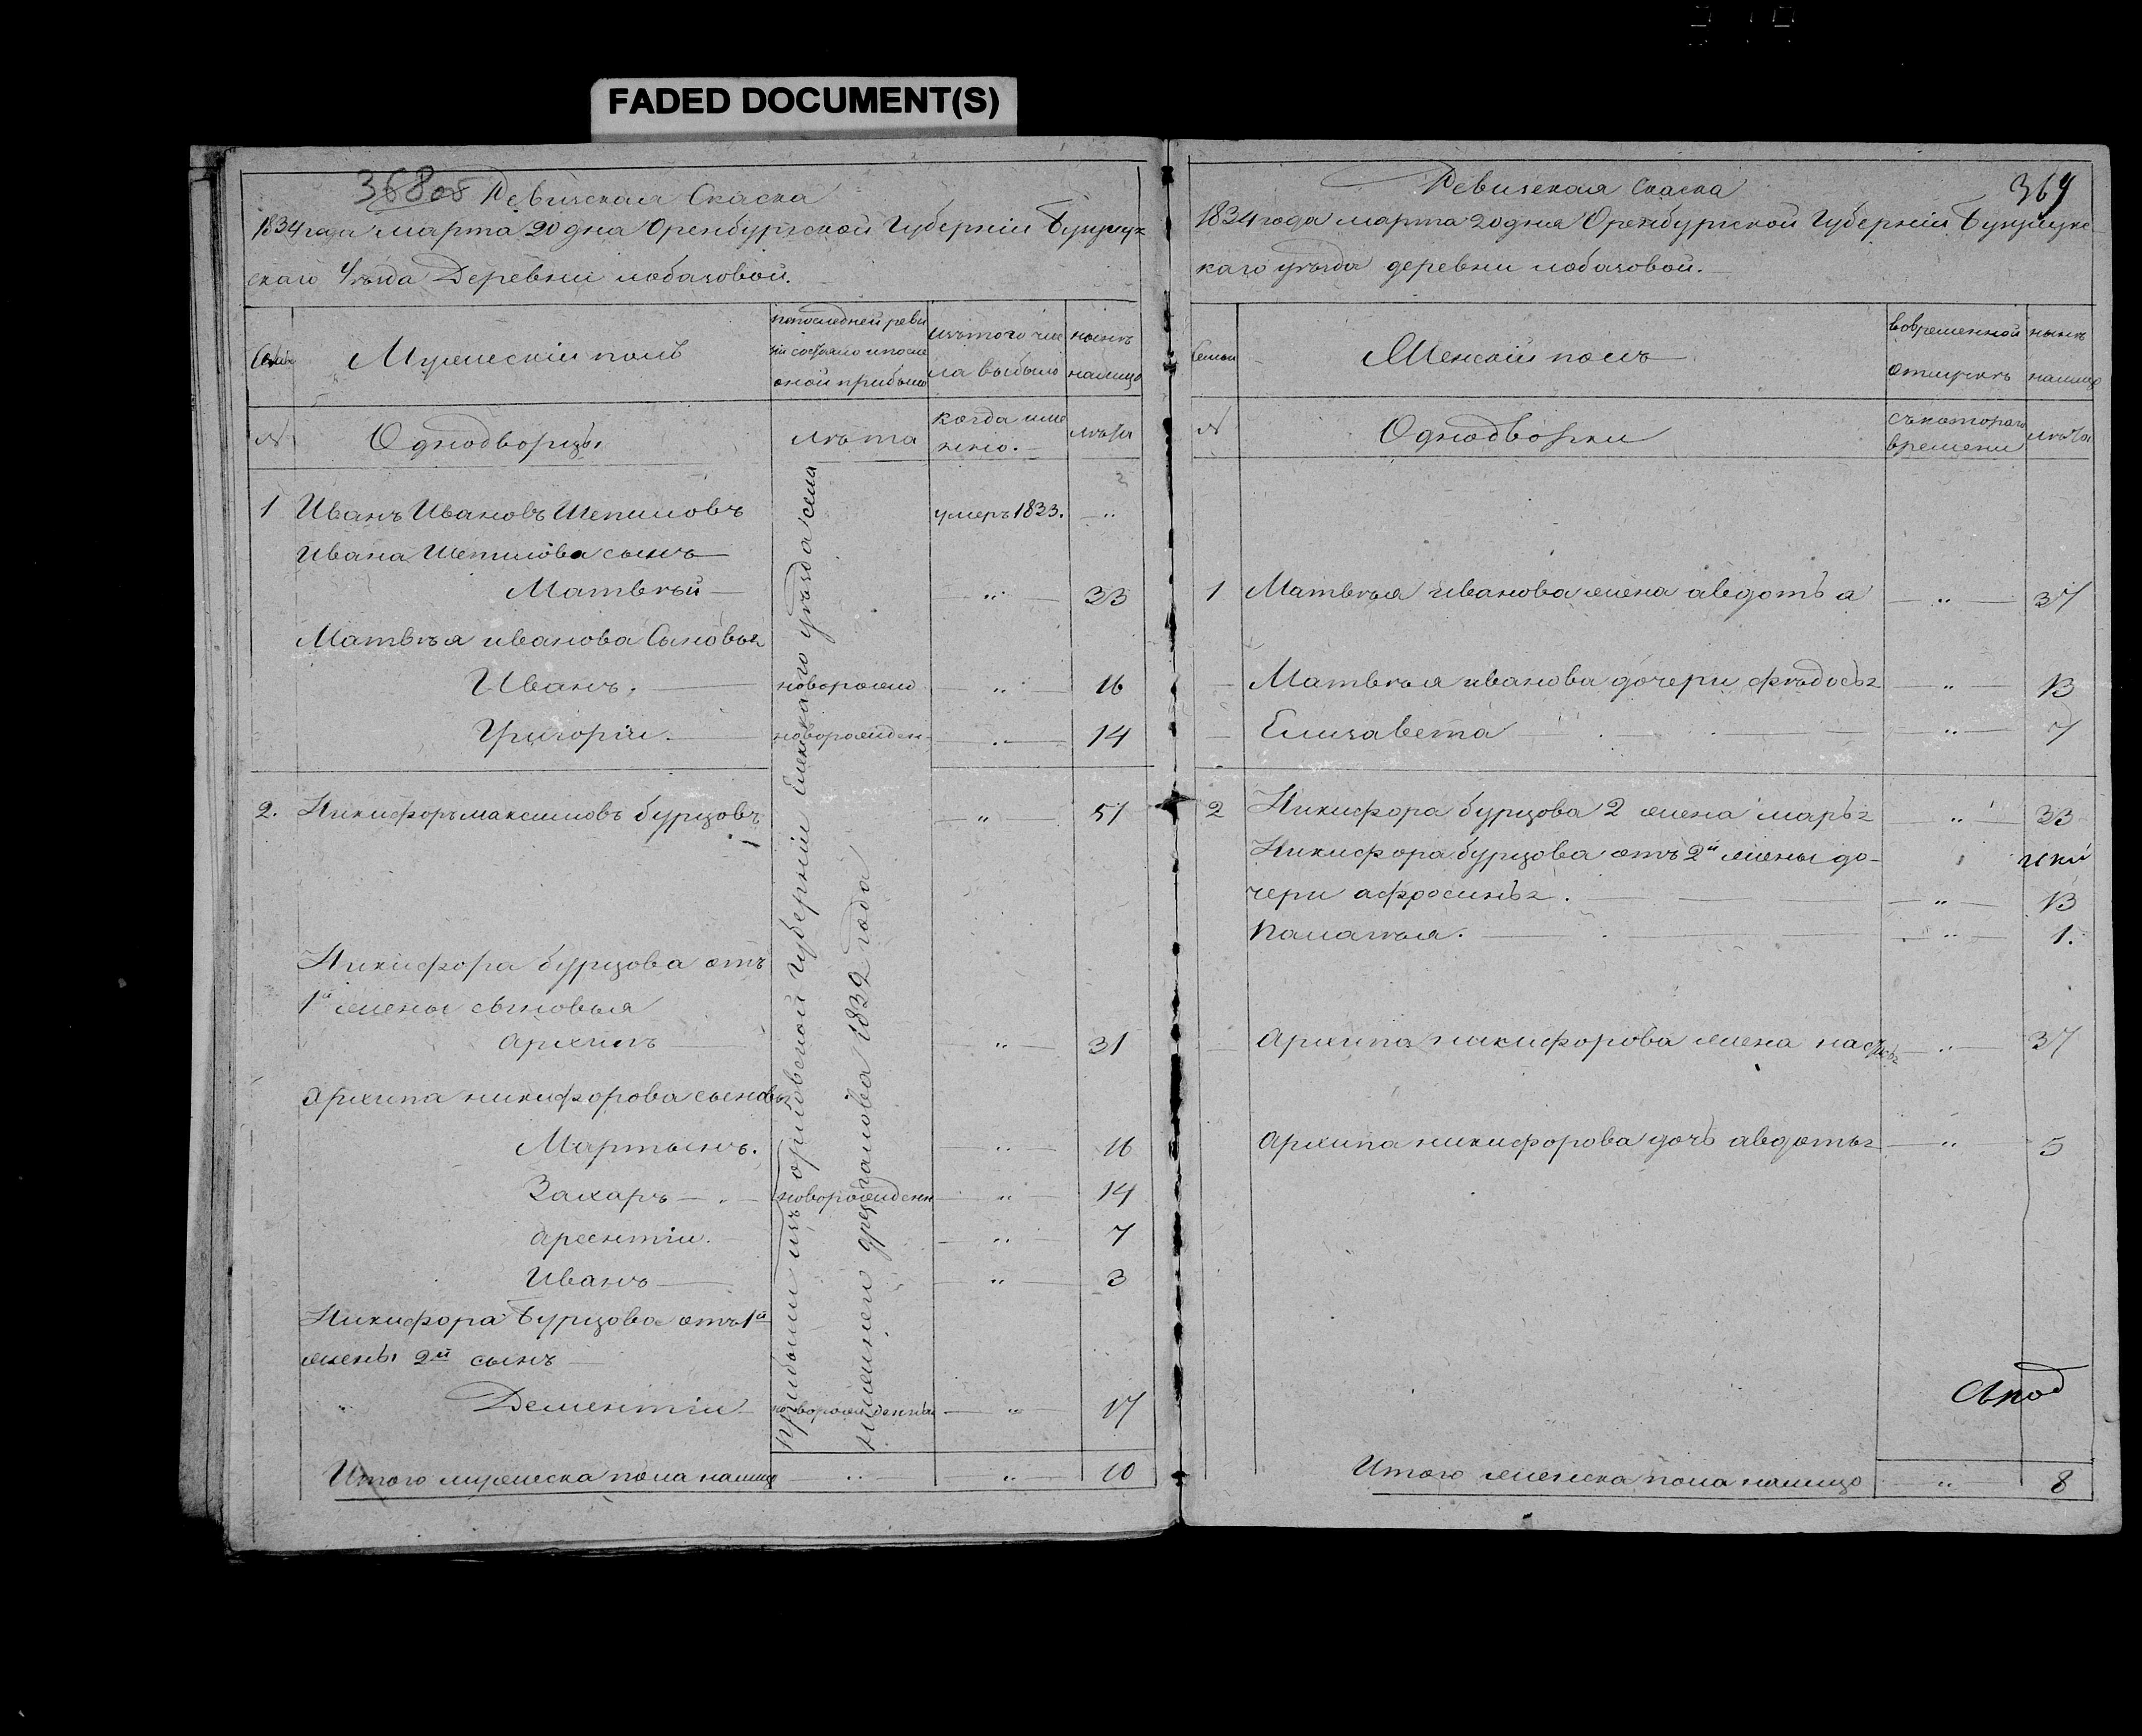 FADED DOCUMENT(S)
368 об Ревиская Скаска
1834 года марта 20 дня Оренбургской Губерніи Бузулук
скаго Уѣзда Деревни лобазовой.
Мужескій полъ
попоследней реви
зіи состояло ипосле
оной прибыло
изътого чис
ла выбыло
нынѣ
налицо
№
Однодворцы
лѣта
когда име
нно.
лѣта
1 Иванъ Ивановъ Шепиловъ умеръ 1833.
Ивана Шепилова сынъ
Матвѣй 33
Матвѣя иванова Сыновья
Иванъ. новорожд 16
Григоріи. новорожден 14
2. Никифоръ максимовъ бурцовъ 51
Никифора бурцова отъ
1й жены сыновья
архипъ 31
архипа никифорова сыновья
Мартынъ. 16
Захаръ новорожденн 14
арсентіи. 7
Иванъ 3
Никифора Бурцова отъ 1й
жены 2й сынъ
Дементіи новорожденны 17
Прибыли изъ орловской Губерніи Елецкаго уѣзда села
года 1832
Итого мужеска пола налицо 10
Ревиская скаска 369
1834 года марта 20 дня Оренбургской Губерніи Бузулукс
каго уѣзда деревни лобазовой.
Семьи
Женскій полъ
вовременной
отлучкѣ
нынѣ
налицо
№
Однодворки
съкотораго
времени
лѣта
1 Матвѣя иванова жена авдотья 37
Матвѣя иванова дочери фѣдосья 13
Елизавета 7
2 Никифора бурцова 2 жена марья 33
Никифора бурцова отъ 2й жены до-
чери афросинья. 13
Палагѣя. 1.
архипа никифорова жена настасья 37
архипа никифорова дочь авдотья 5
Итого женска пола налицо 8